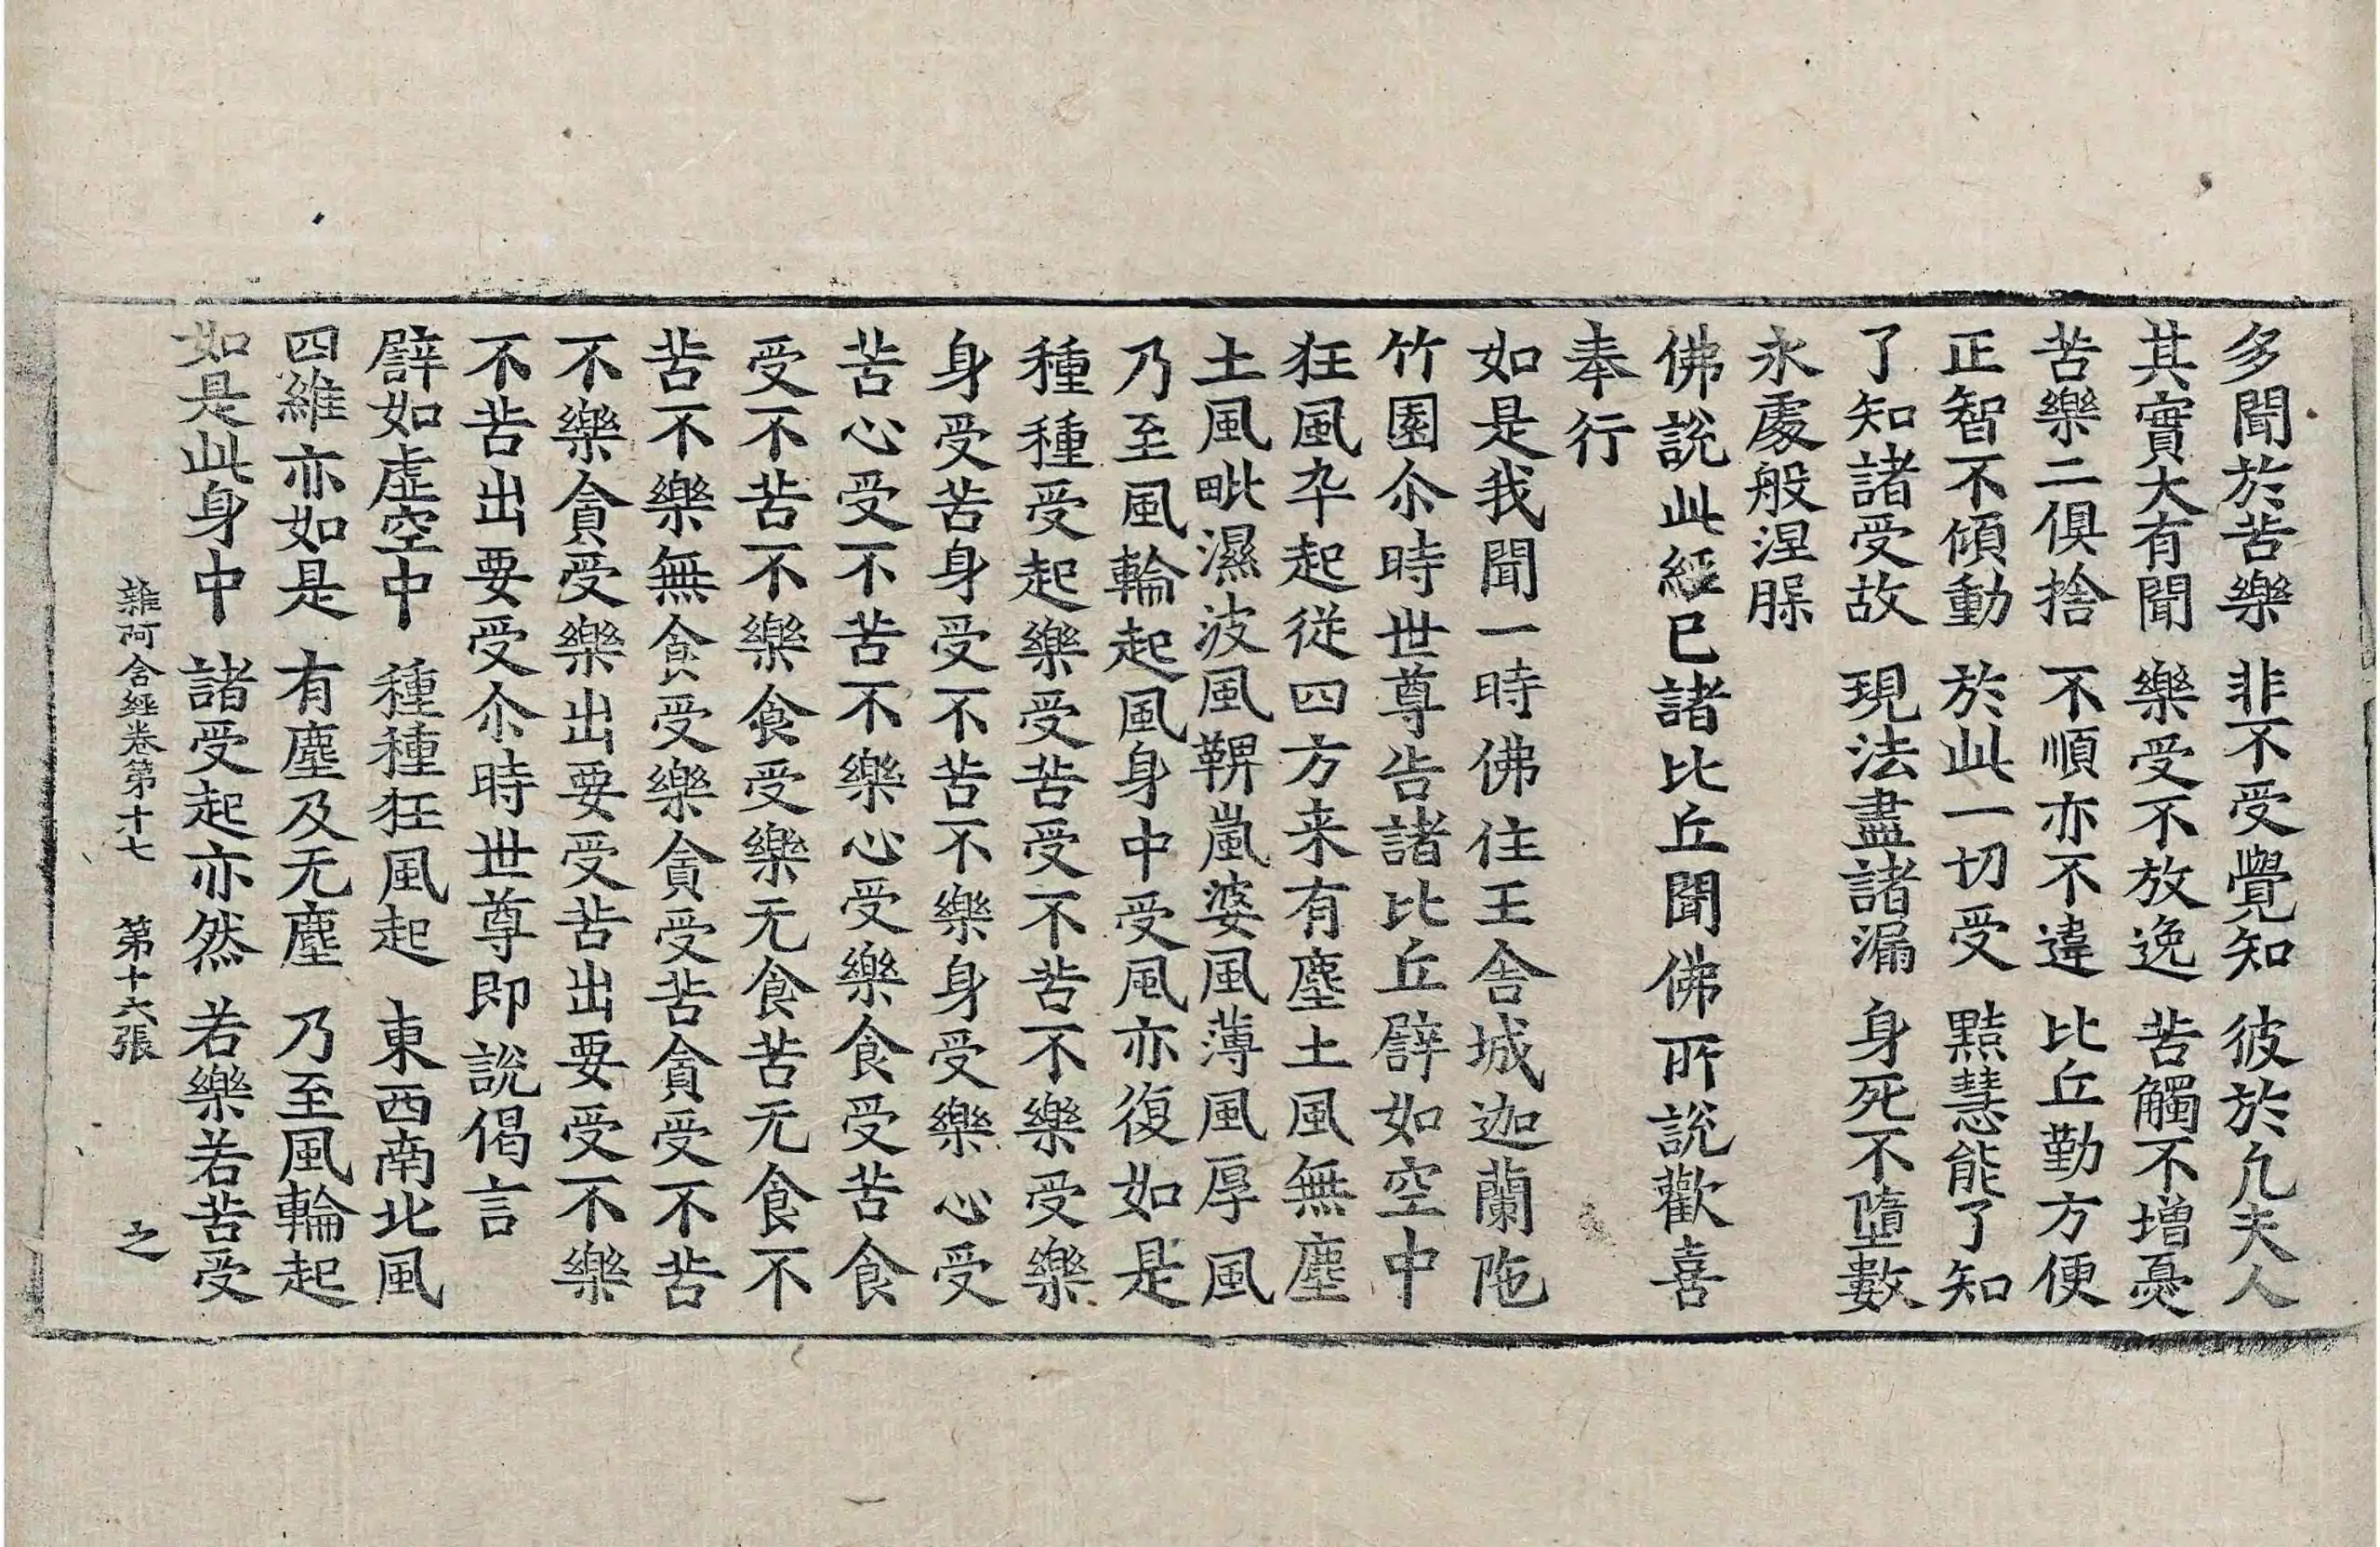 多聞於苦樂　非不受覺知　彼於凢夫人
其實大有聞　樂受不放逸　苦觸不增憂
苦樂二俱捨　不順亦不違　比丘勤方便
正智不傾動　於此一切受　黠慧能了知
了知諸受故　現法盡諸漏　身死不墮數
永處般涅槃
佛說此經已諸比丘聞佛所說歡喜
奉行
如是我聞一時佛住王舍城迦蘭陁
竹園尒時世尊告諸比丘譬如空中
狂風卒起從四方来有塵土風無塵
土風毗濕波風鞞嵐婆風薄風厚風
乃至風輪起風身中受風亦復如是
種種受起樂受苦受不苦不樂受樂
身受苦身受不苦不樂身受樂心受
苦心受不苦不樂心受樂食受苦食
受不苦不樂食受樂无食苦无食不
苦不樂無食受樂貪受苦貪受不苦
不樂貪受樂出要受苦出要受不樂
不苦出要受尒時世尊即說偈言
譬如虛空中　種種狂風起　東西南北風
四維亦如是　有塵及无塵　乃至風輪起
如是此身中　諸受起亦然　若樂若苦受
雜阿含經卷第十七　第十六張　之